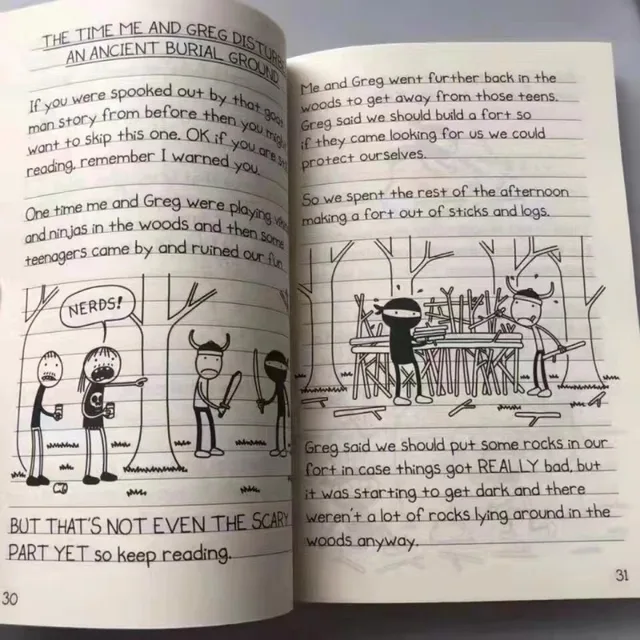 THE TIME ME AND GREG DISTURBED
AN ANCIENT BURIAL GROUND
If you were spooked out by that goat
man story from before then you might
want to skip this one. OK if you are
reading, remember I warned you.
One time me and Greg were playing
and ninjas in the woods and then some
teenagers came by and ruined our fun.
NERDS!
BUT THAT'S NOT EVEN THE SCARY
PART YET so keep reading.
30
Me and Greg went further back in the
woods to get away from those teens.
Greg said we should build a fort so
if they came looking for us we could
protect ourselves.
So we spent the rest of the afternoon
making a fort out of sticks and logs.
Greg said we should put some rocks in our
fort in case things got REALLY bad, but
it was starting to get dark and there
weren't a lot of rocks lying around in the
woods anyway.
31